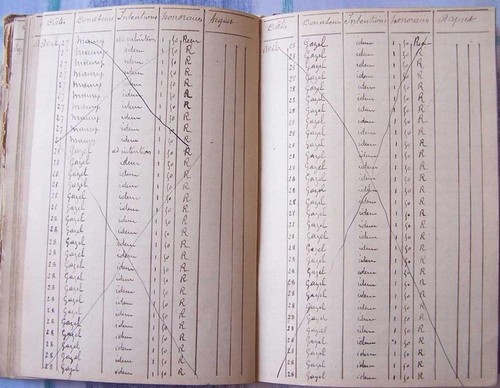 Dates Donateurs Intentions honoraires Acquit
Avril 27 mauny ad intentionem 1 50 Reçu
27 mauny idem 1 50 R
27 mauny idem 1 50 R
27 mauny idem 1 50 R
27 mauny idem 1 50 R
27 mauny idem 1 50 R
27 mauny idem 1 50 R
27 mauny idem 1 50 R
27 mauny idem 1 50 R
27 mauny idem 1 50 R
28 Gazel ad intentionem 1 50 R
28 Gazel idem 1 50 R
28 Gazel idem 1 50 R
28 Gazel idem 1 50 R
28 Gazel idem 1 50 R
28 Gazel idem 1 50 R
28 Gazel idem 1 50 R
28 Gazel idem 1 50 R
28 Gazel idem 1 50 R
28 Gazel idem 1 50 R
28 Gazel idem 1 50 R
28 Gazel idem 1 50 R
28 Gazel idem 1 50 R
28 Gazel idem 1 50 R
28 Gazel idem 1 50 R
28 Gazel idem 1 50 R
28 Gazel idem 1 50 R
28 Gazel idem 1 50 R
28 Gazel idem 1 50 R
28 Gazel idem 1 50 R
Dates Donateurs Intentions honoraires Acquit
Avril 28 Gazel idem 1 50 Reçu
28 Gazel idem 1 50 R
28 Gazel idem 1 50 R
28 Gazel idem 1 50 R
28 Gazel idem 1 50 R
28 Gazel idem 1 50 R
28 Gazel idem 1 50 R
28 Gazel idem 1 50 R
28 Gazel idem 1 50 R
28 Gazel idem 1 50 R
28 Gazel idem 1 50 R
28 Gazel idem 1 50 R
28 Gazel idem 1 50 R
28 Gazel idem 1 50 R
28 Gazel idem 1 50 R
28 Gazel idem 1 50 R
28 Gazel idem 1 50 R
28 Gazel idem 1 50 R
28 Gazel idem 1 50 R
28 Gazel idem 1 50 R
28 Gazel idem 1 50 R
28 Gazel idem 1 50 R
28 Gazel idem 1 50 R
28 Gazel idem 1 50 R
28 Gazel idem 1 50 R
28 Gazel idem 1 50 R
28 Gazel idem 1 50 R
28 Gazel idem 1 50 R
28 Gazel idem 1 50 R
28 Gazel idem 1 50 R